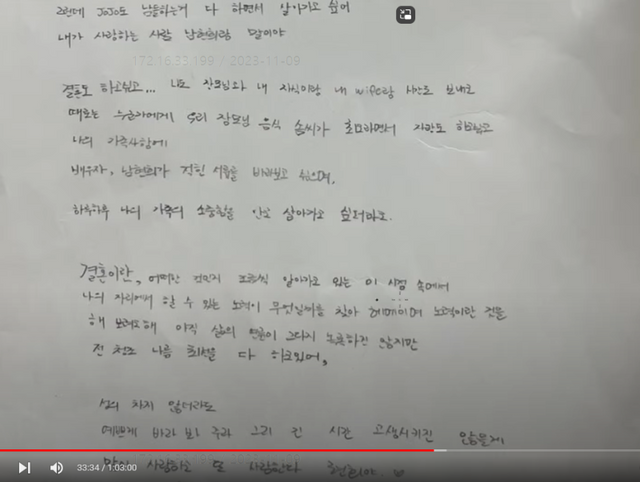 2런데 JoJo도 남들하는거 다 하면서 살아가고 싶어
내가 사랑하는 사람 남현희랑 말이야
172.16.33.199 / 2023-11-09
결혼도 하고싶고... 나도 장모님과 내 자식이랑 내 wife랑 시간도 보내고
때로는 누군가에게 우리 장모님 음식 솜씨가 최고라면서 자랑도 하고싶고
나의 가족사항에
배우자, 남현희가 적힌 서류를 바라보고 싶으며,
하루하루 나의 가족의 소중함을 안고 살아가고 싶더라고.
결혼이란, 어떠한 건인지 조금씩 알아가고 있는 이 시점 속에서
나의 자리에서 할 수 있는 노력이 무엇일까를 찾아 헤매이며 노력이란 것을
해 보려고해 아직 삶의 연륜이 그다지 농후하진 않지만
전청조 나름 최선을 다 하고있어,
성의 차지 않더라도
예쁘게 바라 봐 주라 그리 긴 시간 고생시키진 않을게
많이 사랑하고 또 사랑한다 현희야.
33:34 / 1:03:00